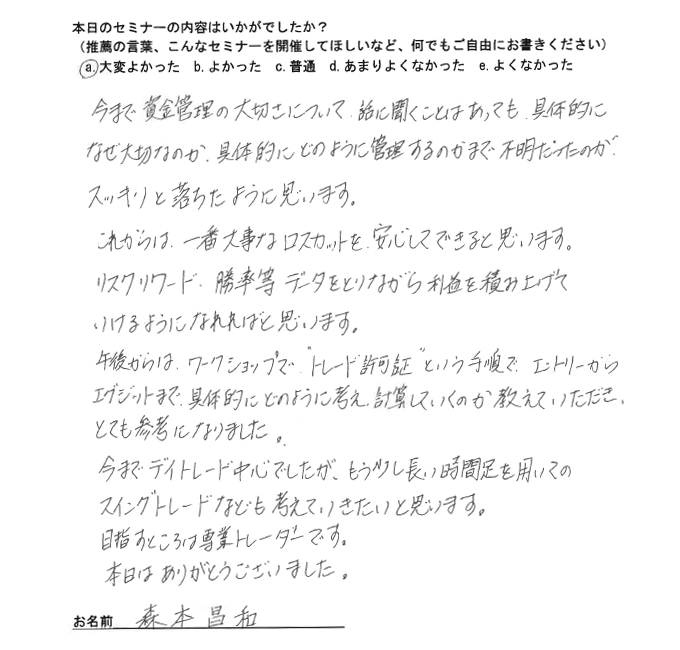 本日のセミナーの内容はいかがでしたか？
（推薦の言葉、こんなセミナーを開催してほしいなど、何でもご自由にお書きください）
a.大変よかった b.よかった c.普通 d.あまりよくなかった e.よくなかった
今まで資金管理の大切さについて、話に聞くことはあっても、具体的に
なぜ大切なのか、具体的にどのように管理するのかまで不明だったのが、
スッキリと落ちたように思います。
これからは、一番大事なロスカットを、安心してできると思います。
リスクリワード、勝率等データをとりながら利益を積み上げて
いけるようになれればと思います。
午後からは、ワークショップで、"トレード許可証"という手順で、エントリーから
エグジットまで、具体的にどのように考え、計算していくのか教えていただき、
とても参考になりました。
今までデイトレード中心でしたが、もう少し長い時間足を用いての
スイングトレードなども考えていきたいと思います。
目指すところは専業トレーダーです。
本日はありがとうございました。
お名前 森本昌和